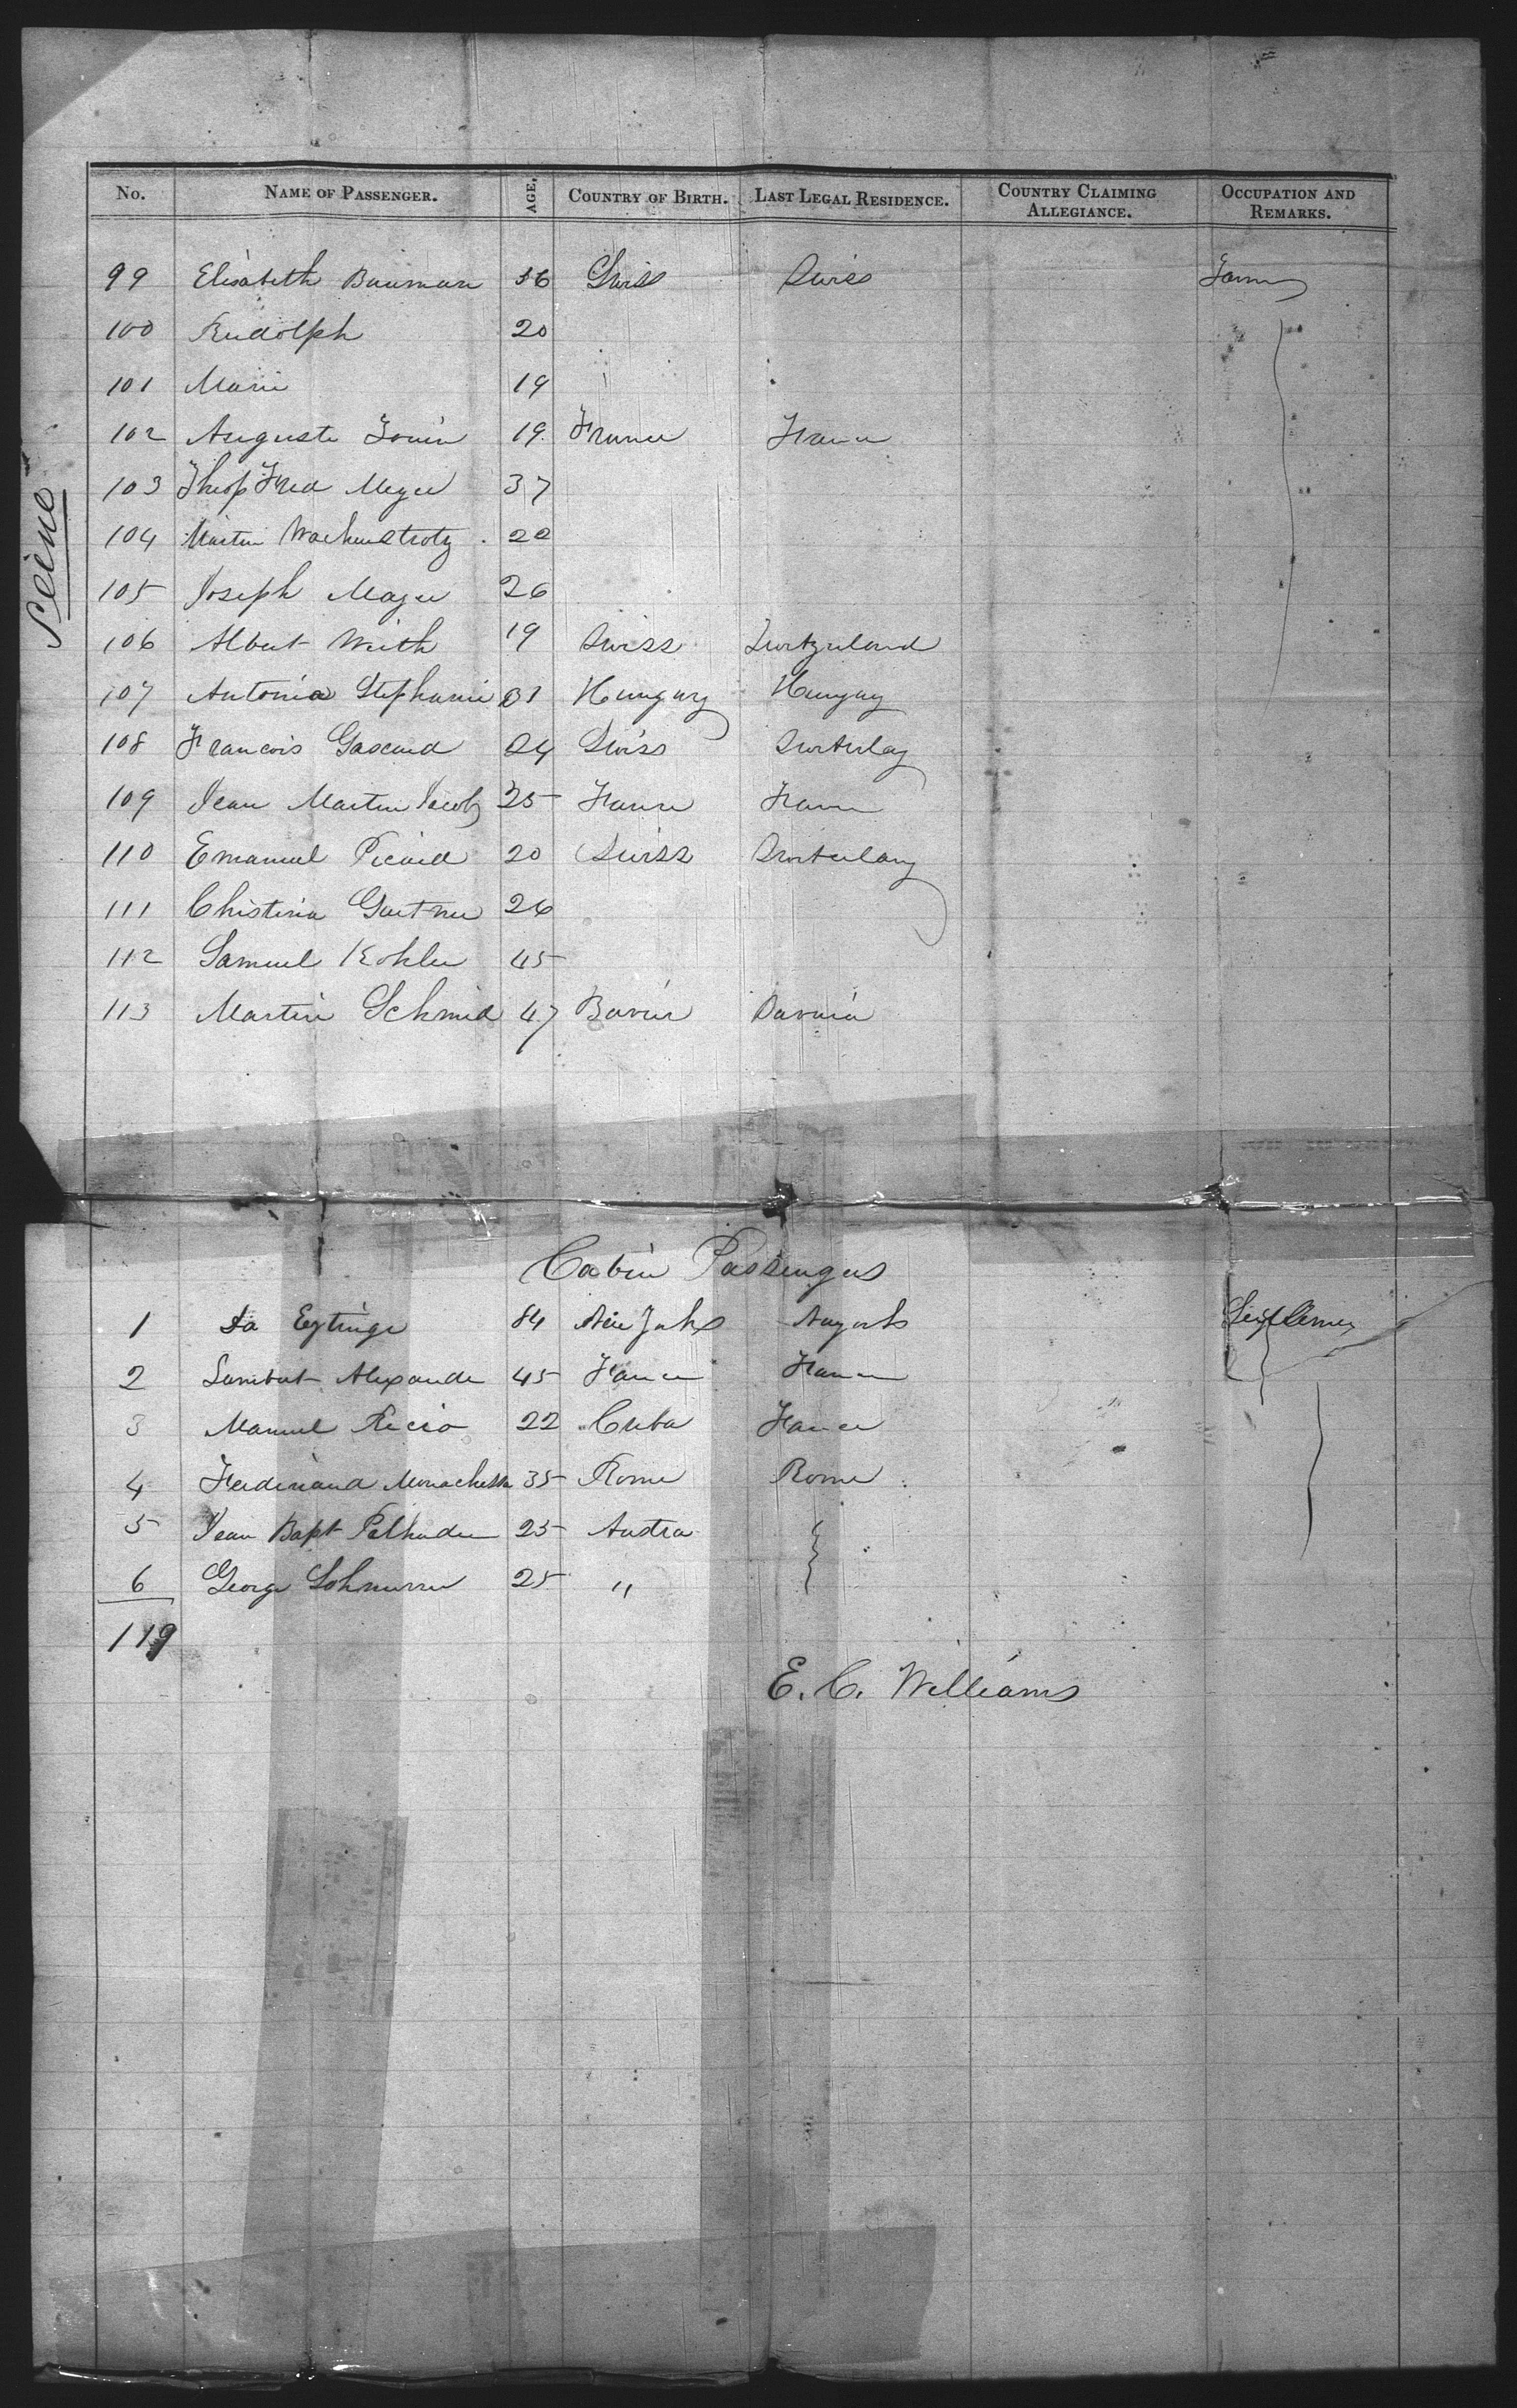 No. NAME OF PASSENGER. AGE. COUNTRY OF BIRTH. LAST LEGAL RESIDENCE. COUNTRY CLAIMING ALLEGIANCE. OCCUPATION AND REMARKS.
Seine
99 Elisabeth Bauman 56 Swiss Swiss Farm
100 Rudolph 20
101 Marie 19
102 Auguste 19 France France
103 Theop Fred Meyer 37
104 Martin 22
105 Joseph Mayer 26
106 Albert Wirth 19 Swiss Switzerland
107 Antonia Stephanie 31 Hungary Hungary
108 Francois 24 Swiss
109 Jean Martin Jacob 25 France France
110 Emanuel Picard 20 Swiss
111 Christina Gartner 26
112 Samuel Kohler 45
113 Martin Schmid 47 Bavier Bavaria
Cabin Passengers
1 Eytinge 84 New York
2 Alexandre 45 France France
3 Manuel Recio 22 Cuba France
4 Ferdinand 35 Rome Rome
5 Jean Bapt 25 Austra
6 George 25 "
119
E. C. Williams